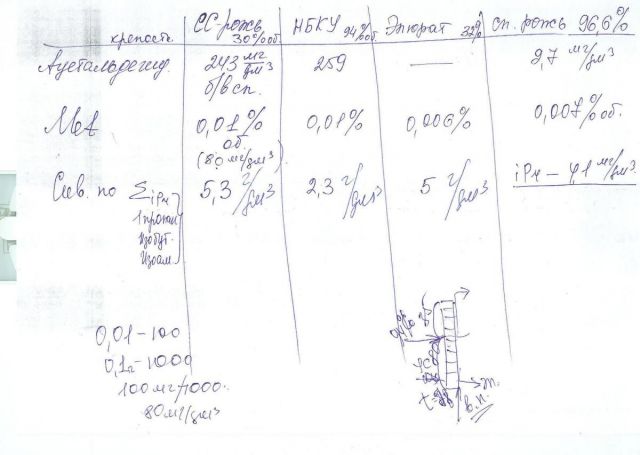 крепость. СС-рожь 30%об НБКУ 94%об Эпюрат 32% сп. рожь 96,6%
Ацетальдегид. 243 мг/дм³ 259 — 2,7 мг/дм³
б/в сп.
МеА 0,01% 0,01% 0,006% 0,007%об.
об.
(80 мг/дм³)
Сив. по Σ iPr 5,3 г/дм³ 2,3 г/дм³ 5 г/дм³ iPr – 4,1 мг/дм³
1 пропан
Изобут.
Изоам.
0,01 – 100
0,1 – 1000
100 мг/1000.
80 мг/дм³
в.п.